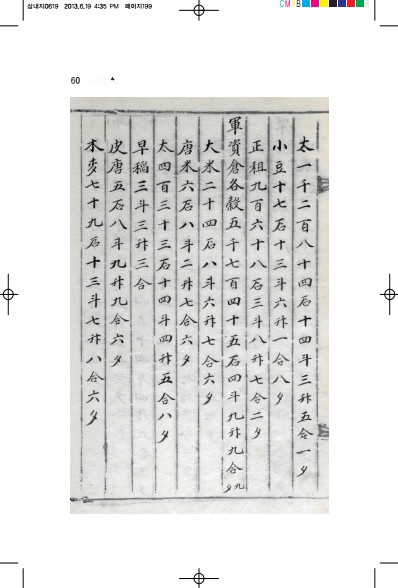 심내지0619 2013.6.19 4:35 PM 페이지199
CM B
60
太一千二百八十四石十四斗三升五合一夕
小豆十七石十三斗六升一合八夕
正租九百六十八石三斗八升七合二夕
軍資倉各穀五千七百四十五石四斗九升九合九夕
大米二十四石八斗六升七合六夕
唐米六石八斗二升七合六夕
太四百三十三石十四斗四升五合八夕
早稻三斗三升三合
皮唐五石八斗九升九合六夕
木麥七十九石十三斗七升八合六夕